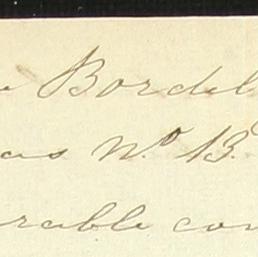 e Bordel
as No. 13.
erable con